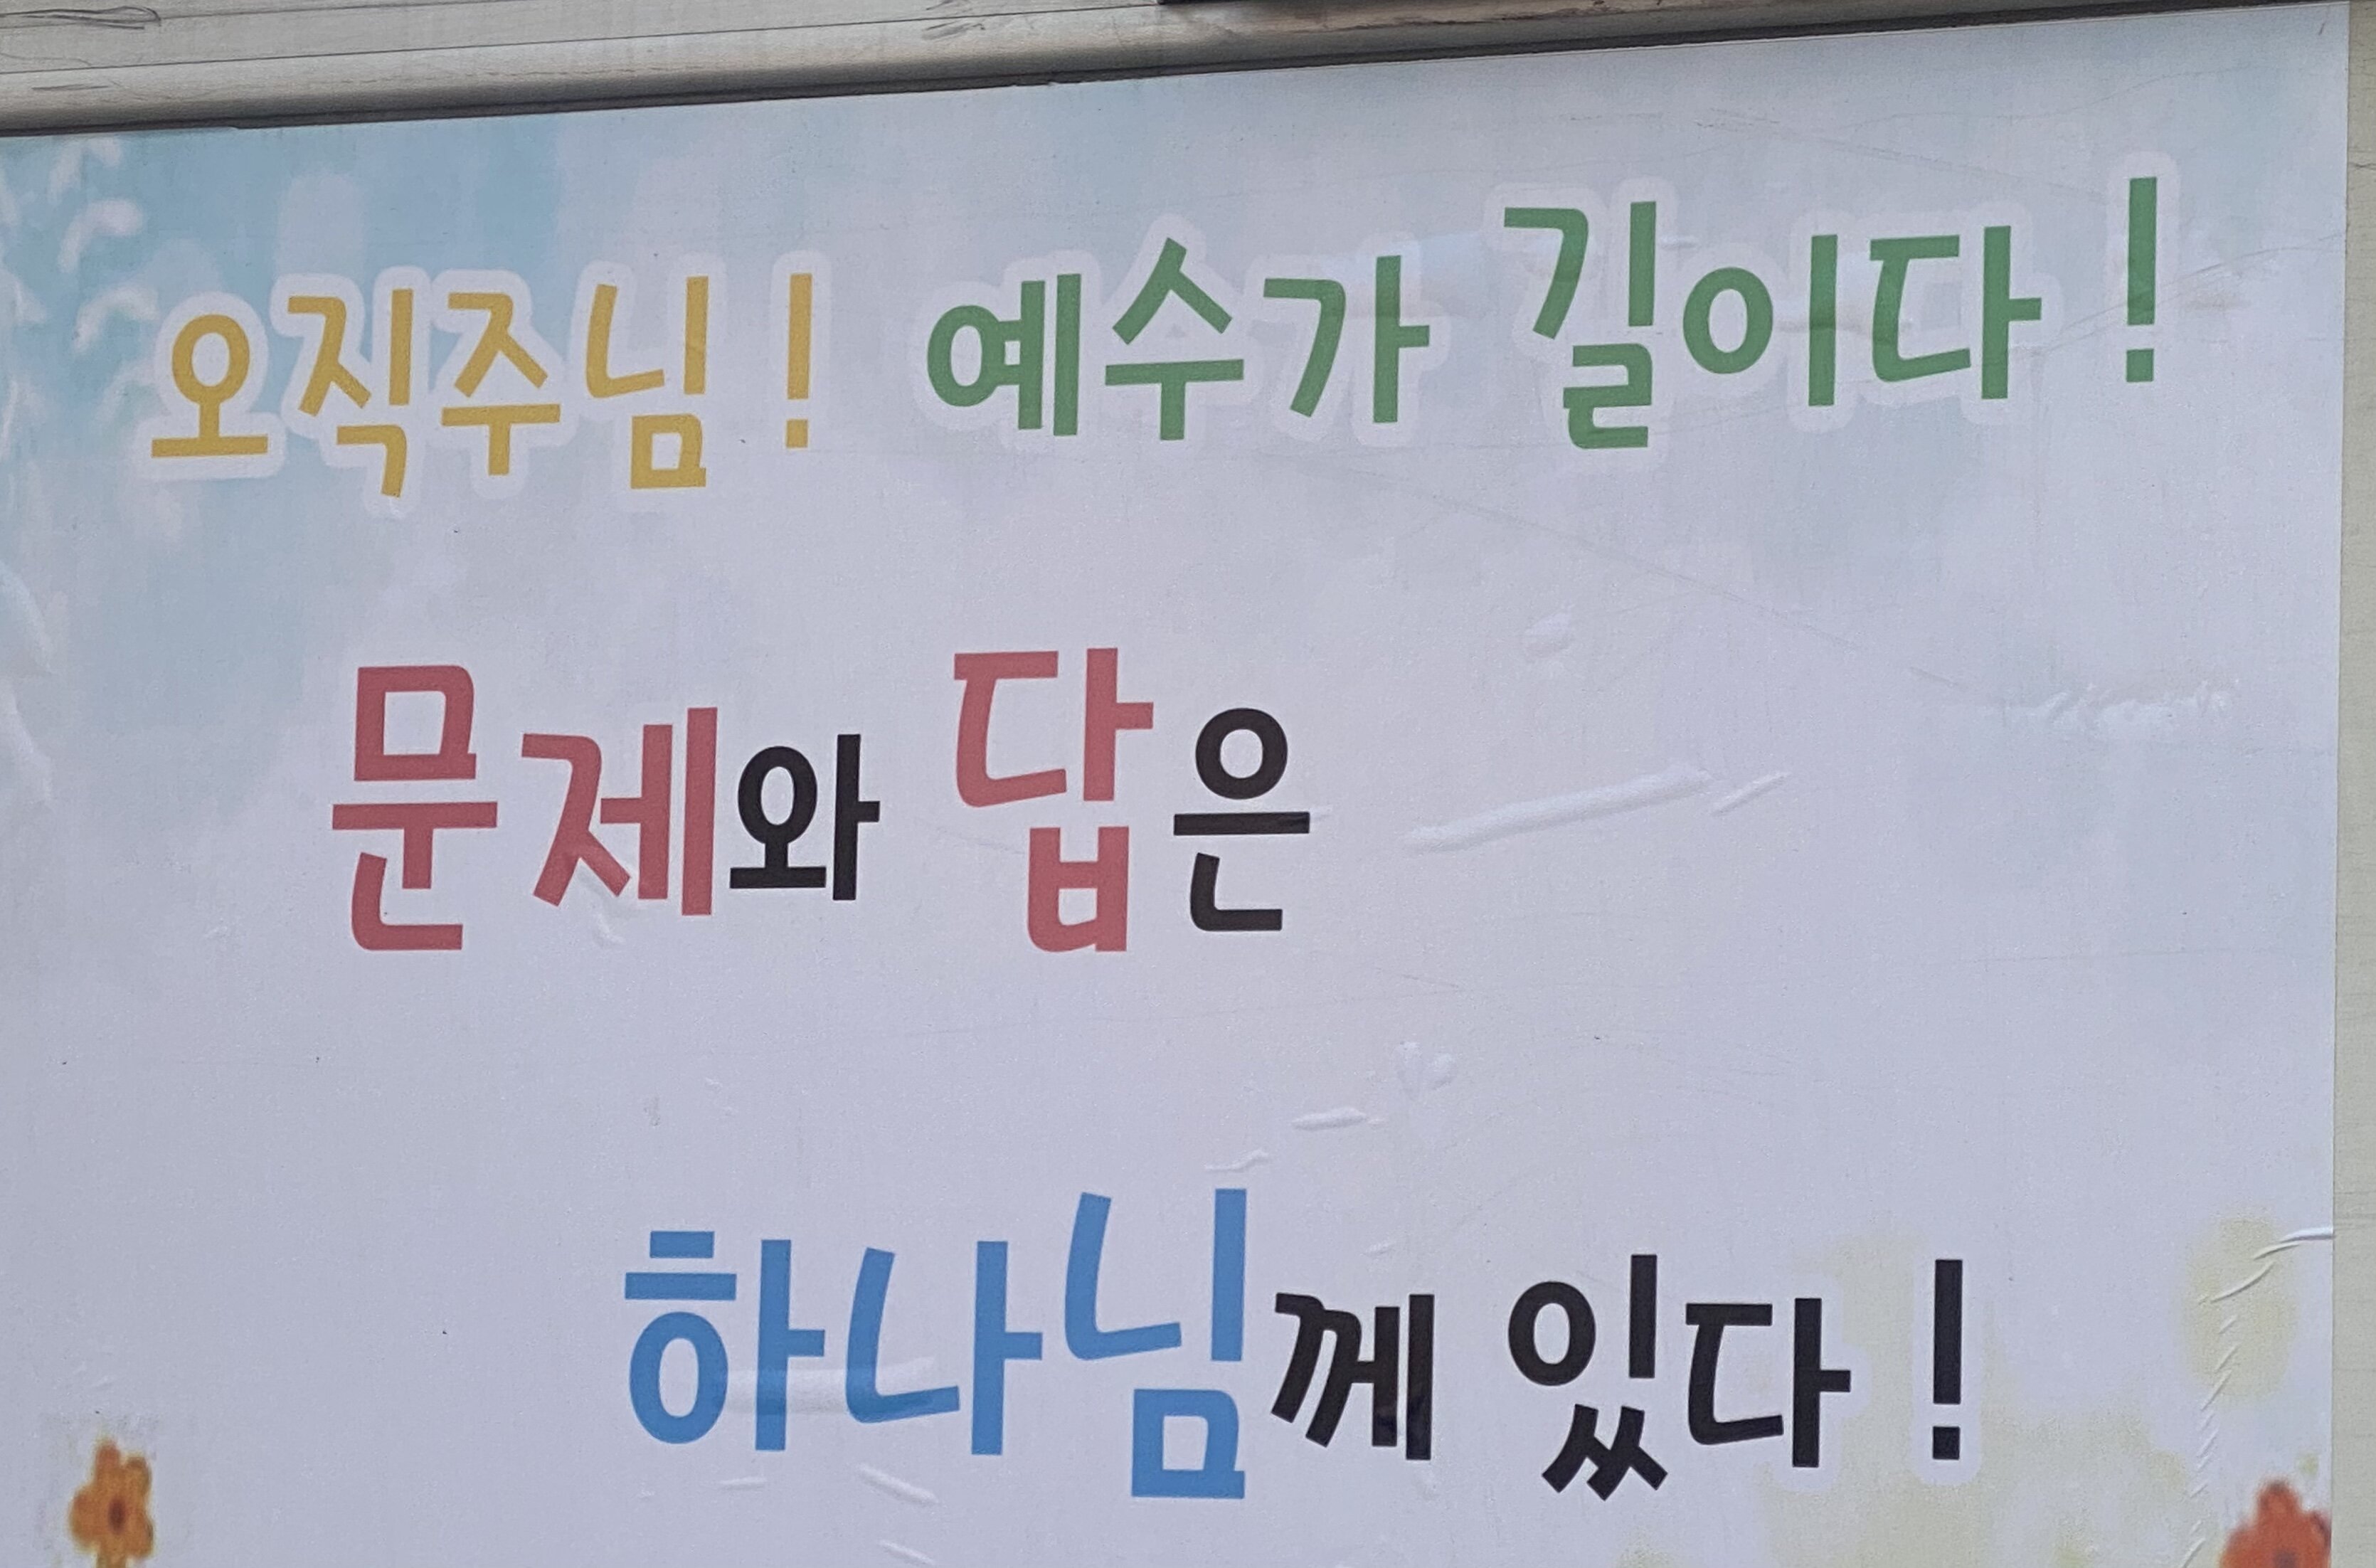 오직주님! 예수가 길이다!
문제와 답은
하나님께 있다!